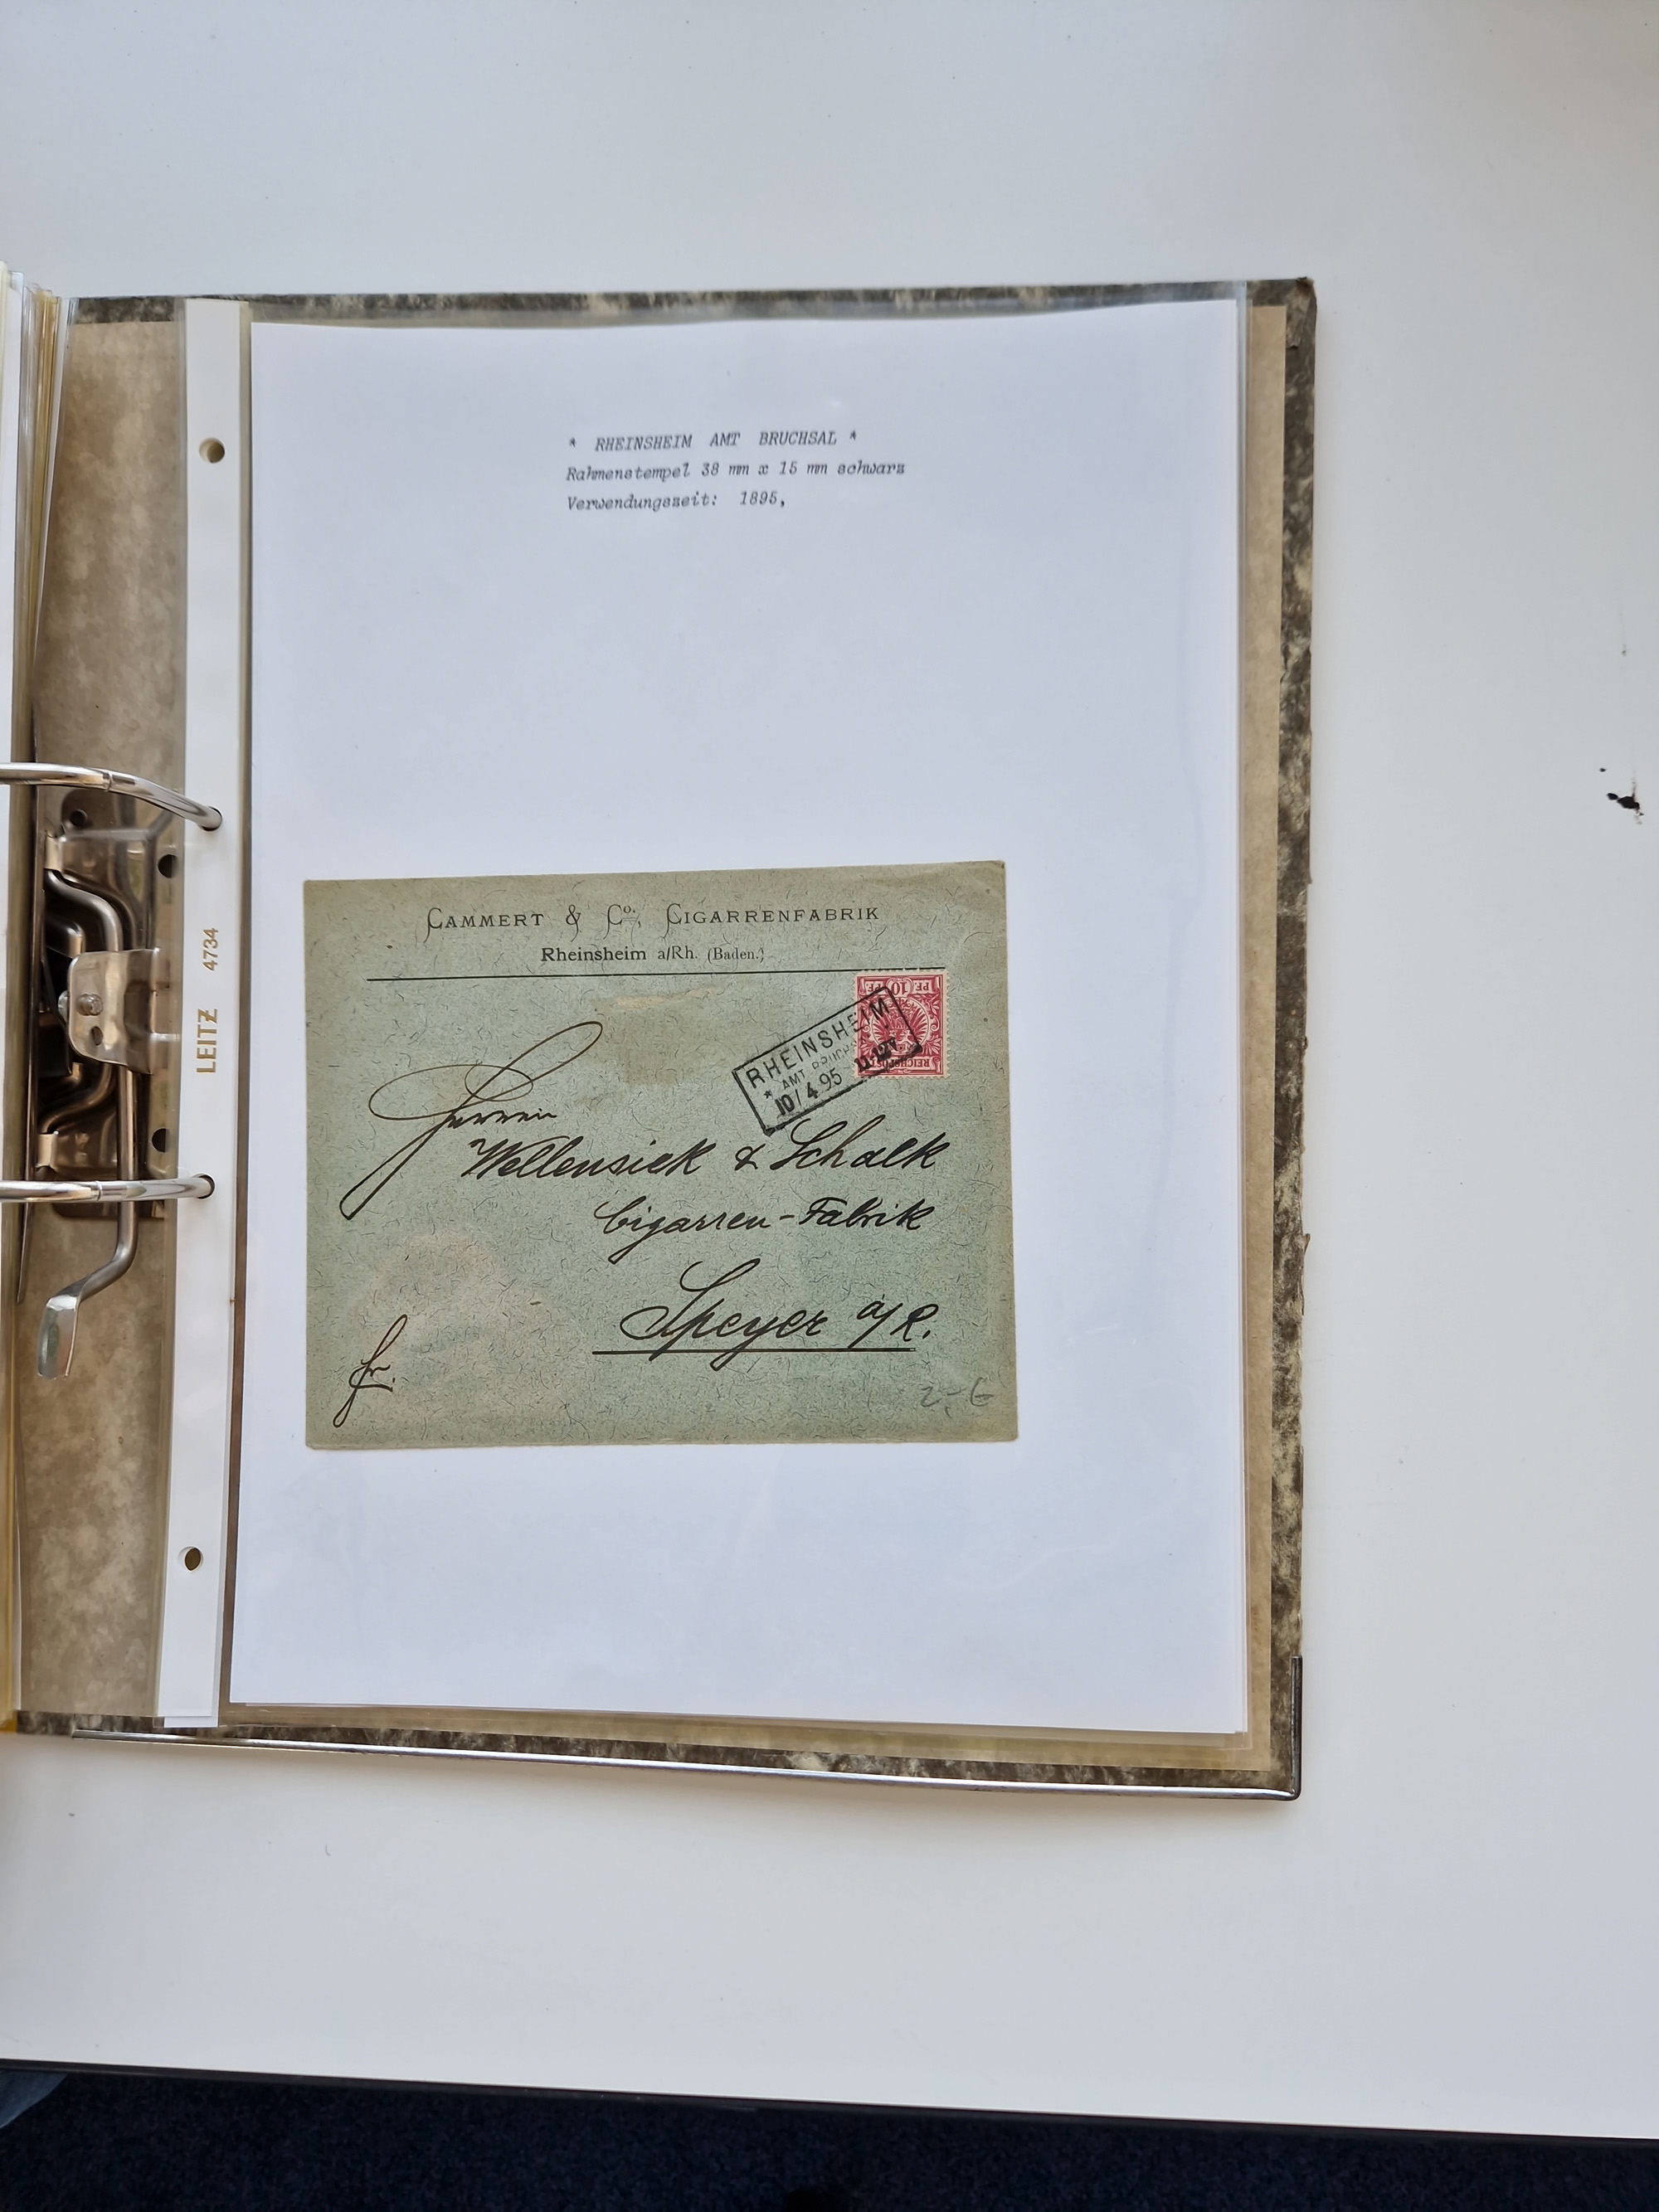 * RHEINSHEIM AMT BRUCHSAL *
Rahmenstempel 38 mm x 15 mm schwarz
Verwendungszeit: 1895,
LEITZ 4734
CAMMERT & Co. CIGARRENFABRIK
Rheinsheim a/Rh. (Baden.)
PF 10 PF
REICHSPOST
RHEINSHEIM
* AMT BRUCHSAL
10/4 95 11-12V
Herren
Wellensiek & Schalk
Cigarren-Fabrik
Speyer a/R.
fr.
2,- €